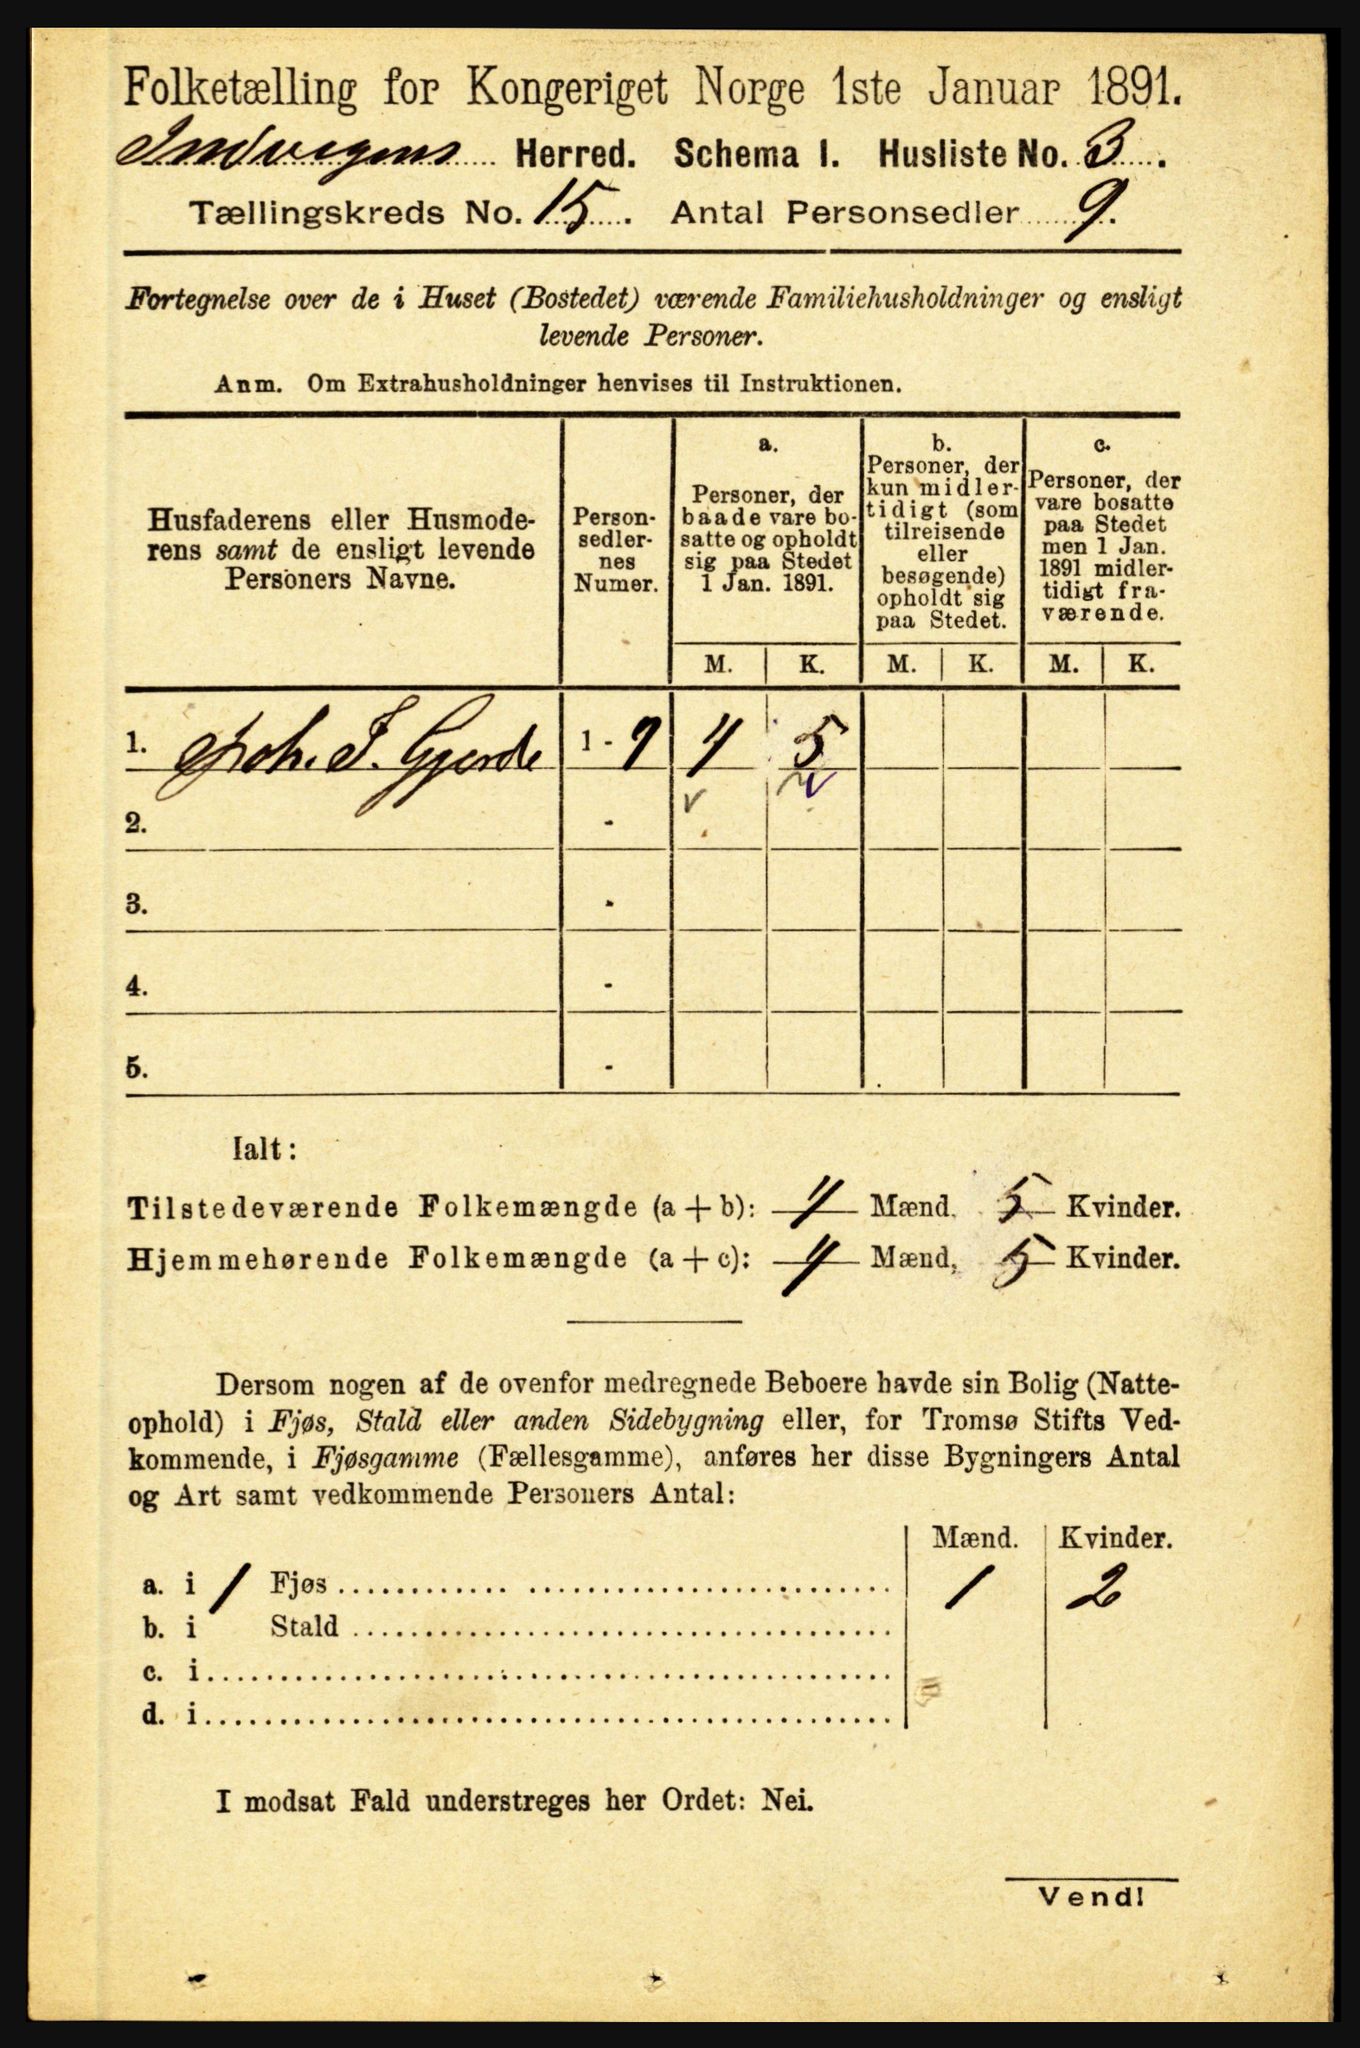 Folketælling for Kongeriget Norge 1ste Januar 1891.
Indvigens Herred. Schema I. Husliste No. 3.
Tællingskreds No. 15. Antal Personsedler 9.
Fortegnelse over de i Huset (Bostedet) værende Familiehusholdninger og ensligt
levende Personer.
Anm. Om Extrahusholdninger henvises til Instruktionen.
Husfaderens eller Husmode-
rens samt de ensligt levende
Personers Navne.
Person-
sedler-
nes
Numer.
a.
Personer, der
baade vare bo-
satte og opholdt
sig paa Stedet
1 Jan. 1891.
b.
Personer, der
kun midler-
tidigt (som
tilreisende
eller
besøgende)
opholdt sig
paa Stedet.
c.
Personer, der
vare bosatte
paa Stedet
men 1 Jan.
1891 midler-
tidigt fra-
værende.
M. K. M. K. M. K.
1. Joh. J. Gjerde 1 - 9 4 5
2. -
3. -
4. -
5. -
Ialt:
Tilstedeværende Folkemængde (a + b): 4 Mænd, 5 Kvinder.
Hjemmehørende Folkemængde (a + c): 4 Mænd, 5 Kvinder.
Dersom nogen af de ovenfor medregnede Beboere havde sin Bolig (Natte-
ophold) i Fjøs, Stald eller anden Sidebygning eller, for Tromsø Stifts Ved-
kommende, i Fjøsgamme (Fællesgamme), anføres her disse Bygningers Antal
og Art samt vedkommende Personers Antal:
Mænd. Kvinder.
a. i 1 Fjøs 1 2
b. i Stald
c. i
d. i
I modsat Fald understreges her Ordet: Nei.
Vend!